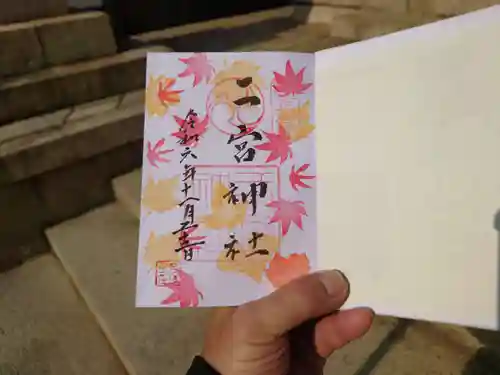 二宮神社
令和六年十一月二十二日